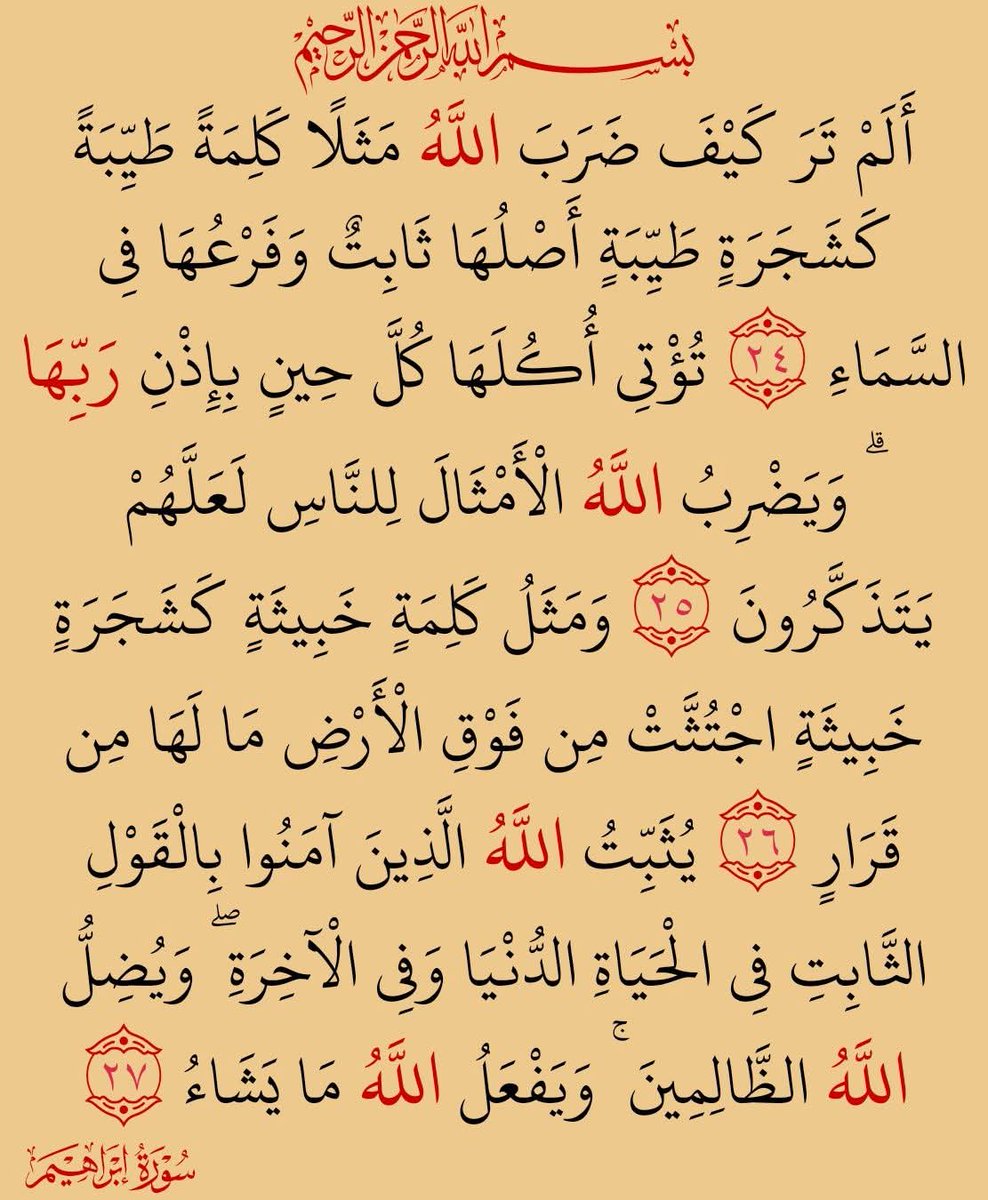 بسم الله الرحمن الرحيم
أَلَمْ تَرَ كَيْفَ ضَرَبَ اللَّهُ مَثَلًا كَلِمَةً طَيِّبَةً
كَشَجَرَةٍ طَيِّبَةٍ أَصْلُهَا ثَابِتٌ وَفَرْعُهَا فِي
السَّمَاءِ ٢٤ تُؤْتِي أُكُلَهَا كُلَّ حِينٍ بِإِذْنِ رَبِّهَا
ۗ وَيَضْرِبُ اللَّهُ الْأَمْثَالَ لِلنَّاسِ لَعَلَّهُمْ
يَتَذَكَّرُونَ ٢٥ وَمَثَلُ كَلِمَةٍ خَبِيثَةٍ كَشَجَرَةٍ
خَبِيثَةٍ اجْتُثَّتْ مِن فَوْقِ الْأَرْضِ مَا لَهَا مِن
قَرَارٍ ٢٦ يُثَبِّتُ اللَّهُ الَّذِينَ آمَنُوا بِالْقَوْلِ
الثَّابِتِ فِي الْحَيَاةِ الدُّنْيَا وَفِي الْآخِرَةِ ۖ وَيُضِلُّ
اللَّهُ الظَّالِمِينَ ۚ وَيَفْعَلُ اللَّهُ مَا يَشَاءُ ٢٧
سُورَةُ إِبْرَاهِيم